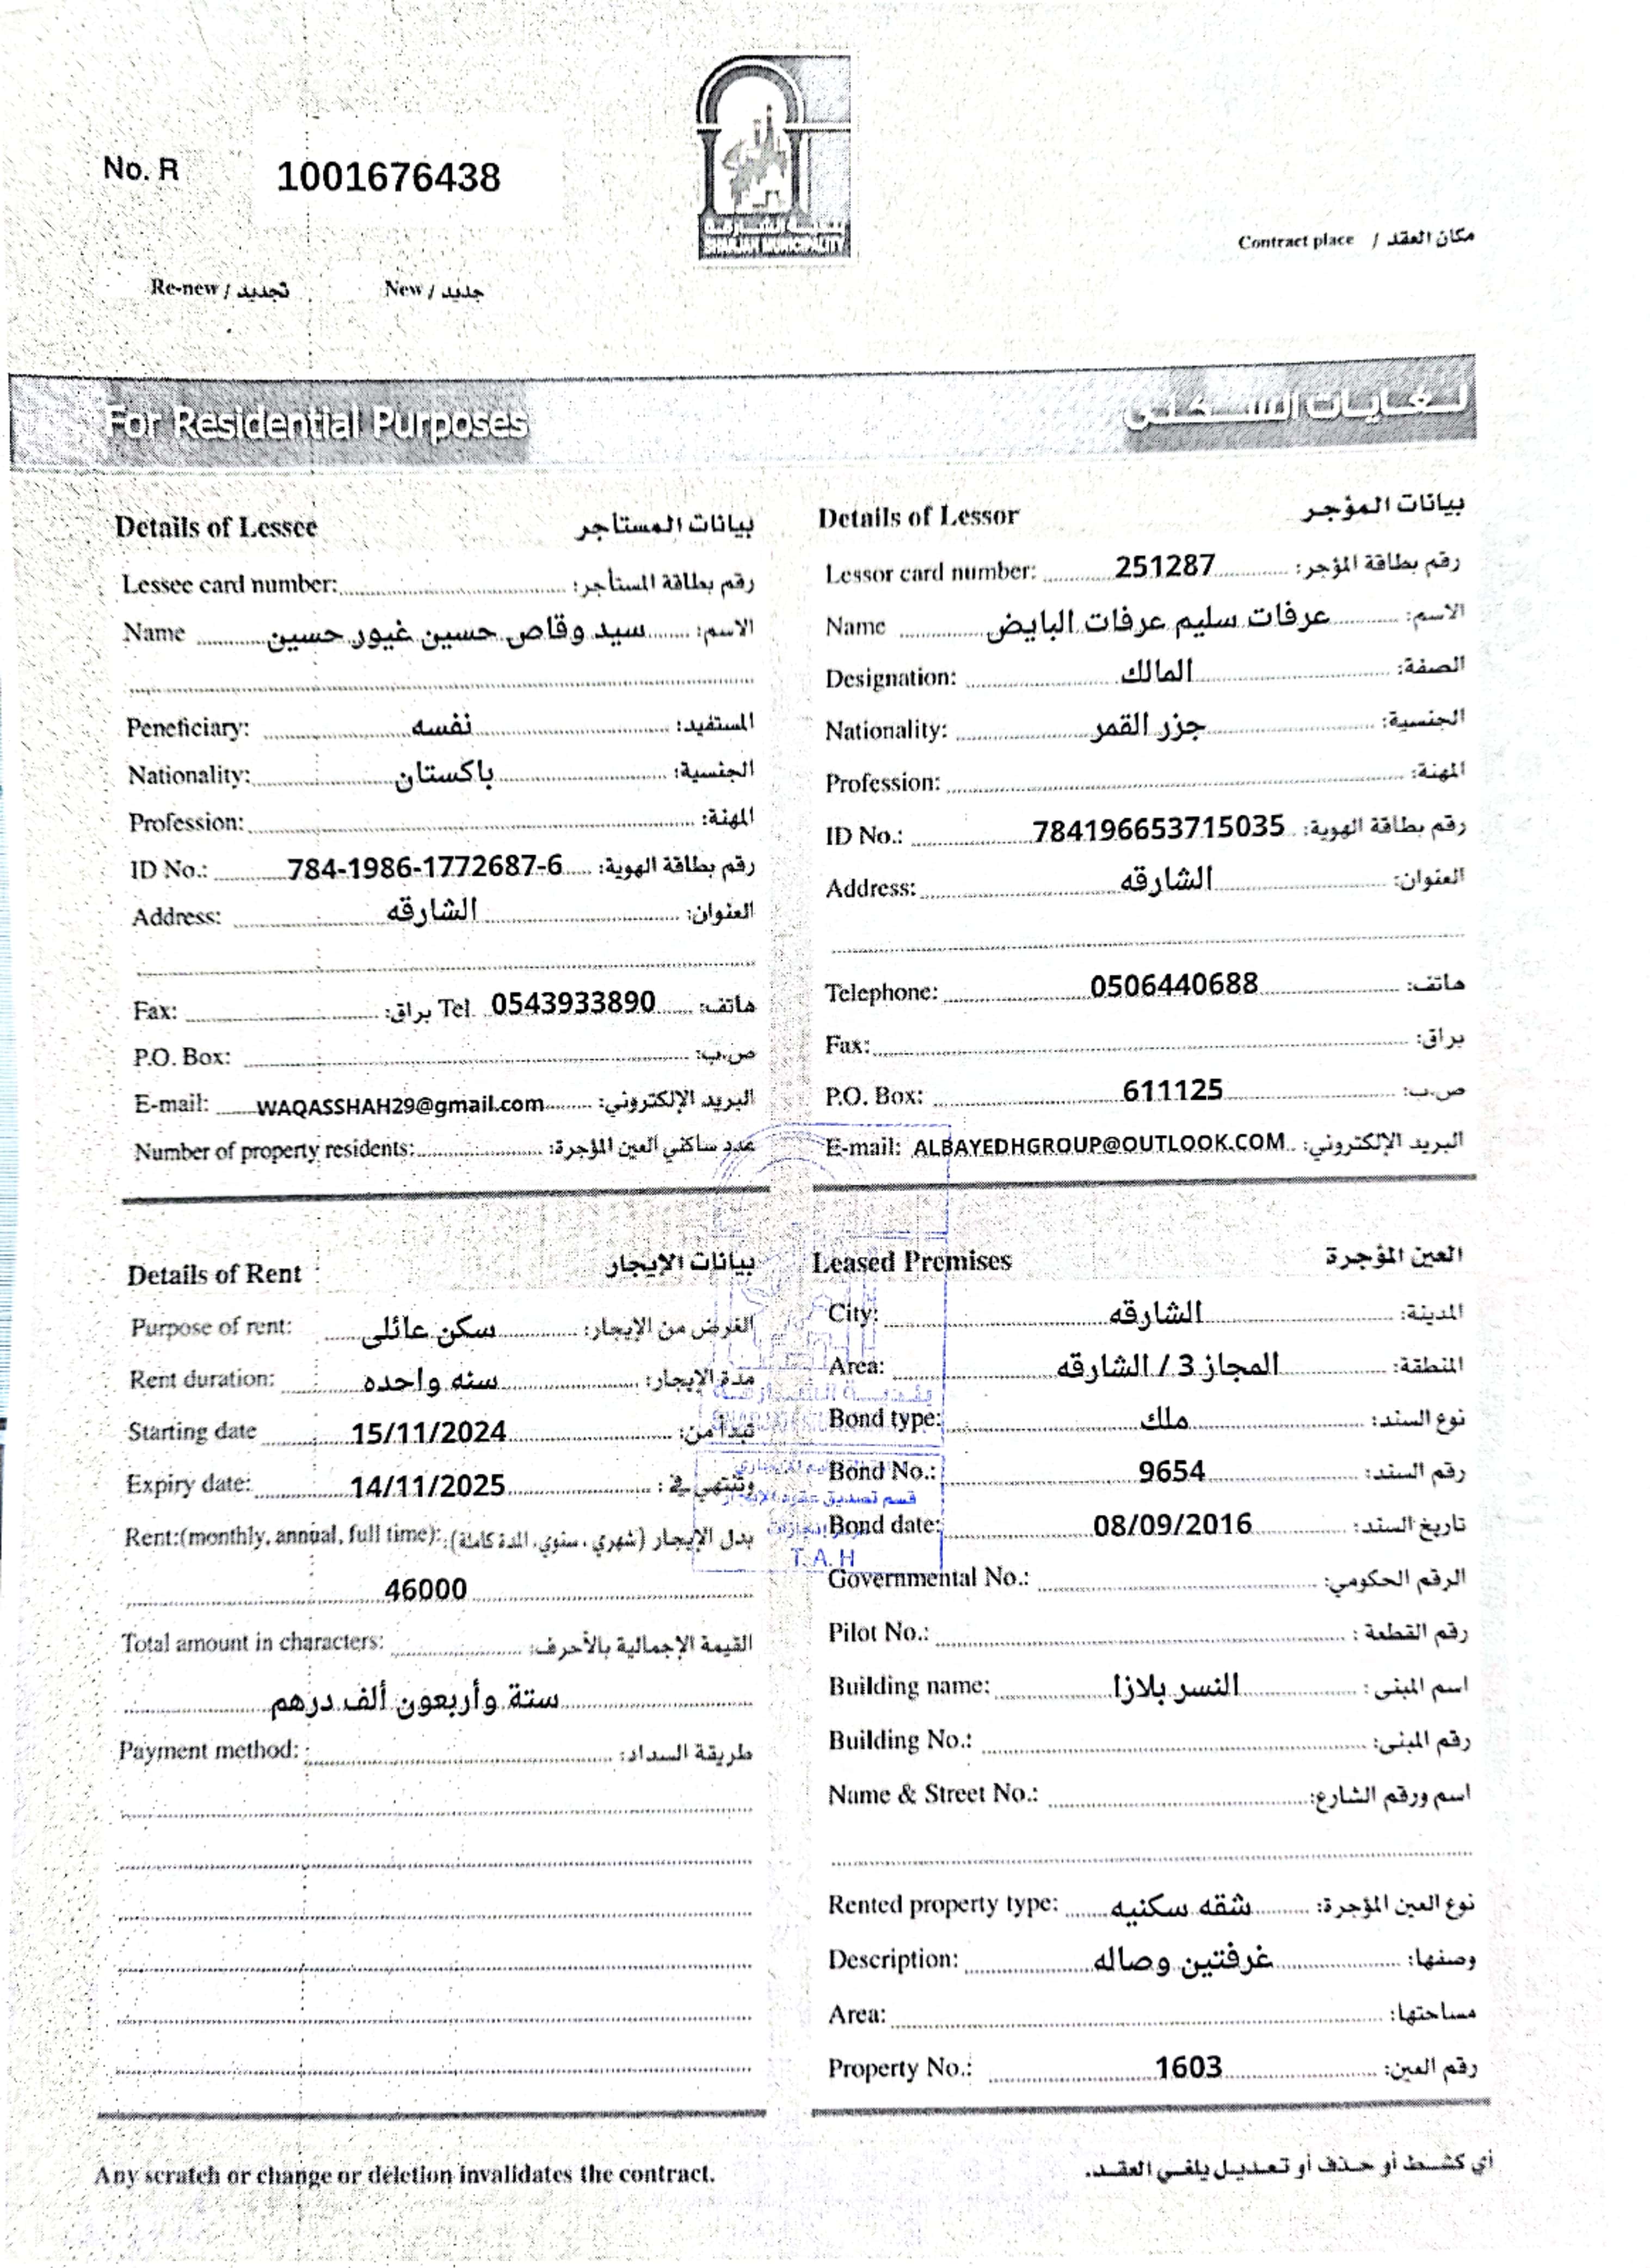 No. R 1001676438
بلدية الشارقة
SHARJAH MUNICIPALITY
Contract place / مكان العقد
Re-new / تجديد New / جديد
For Residential Purposes لغايات السكنى
Details of Lessee بيانات المستأجر
Lessee card number: رقم بطاقة المستأجر:
Name سيد وقاص حسين غيور حسين الاسم:
Peneficiary: نفسه المستفيد:
Nationality: باكستان الجنسية:
Profession: المهنة:
ID No.: 784-1986-1772687-6 رقم بطاقة الهوية:
Address: الشارقه العنوان:
Fax: براق: Tel 0543933890 هاتف:
P.O. Box: ص.ب:
E-mail: WAQASSHAH29@gmail.com البريد الإلكتروني:
Number of property residents: عدد ساكني العين المؤجرة:
Details of Lessor بيانات المؤجر
Lessor card number: 251287 رقم بطاقة المؤجر:
Name عرفات سليم عرفات البايض الاسم:
Designation: المالك الصفة:
Nationality: جزر القمر الجنسية:
Profession: المهنة:
ID No.: 784196653715035 رقم بطاقة الهوية:
Address: الشارقه العنوان:
Telephone: 0506440688 هاتف:
Fax: براق:
P.O. Box: 611125 ص.ب:
E-mail: ALBAYEDHGROUP@OUTLOOK.COM البريد الإلكتروني:
Details of Rent بيانات الإيجار
Purpose of rent: سكن عائلى الغرض من الإيجار:
Rent duration: سنه واحده مدة الإيجار:
Starting date 15/11/2024 تبدأ من:
Expiry date: 14/11/2025 وتنتهي في :
Rent:(monthly, annual, full time): بدل الإيجار (شهري ، سنوي، المدة كاملة)
46000
Total amount in characters: القيمة الإجمالية بالأحرف:
ستة وأربعون ألف درهم
Payment method: طريقة السداد:
Leased Premises العين المؤجرة
City: الشارقه المدينة:
Area: المجاز 3 / الشارقه المنطقة:
Bond type: ملك نوع السند:
Bond No.: 9654 رقم السند:
Bond date: 08/09/2016 تاريخ السند:
Governmental No.: الرقم الحكومي:
Pilot No.: رقم القطعة :
Building name: النسر بلازا اسم المبنى :
Building No.: رقم المبنى:
Name & Street No.: اسم ورقم الشارع:
Rented property type: شقه سكنيه نوع العين المؤجرة:
Description: غرفتين وصاله وصفها:
Area: مساحتها:
Property No.: 1603 رقم العين:
قسم تصديق عقود الإيجار
T.A.H
Any scratch or change or deletion invalidates the contract. أي كشط أو حذف أو تعديل يلغي العقد.